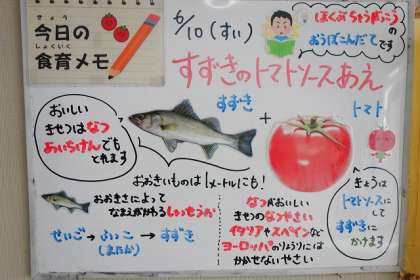 きょう
今日の
しょくいく
食育メモ
6/10(すい)
ほくぶちゅうがっこう
のおうぼこんだて
です
すずきのトマトソースあえ
おいしい
きせつはなつ
あいちけんでも
とれます
すずき
+
トマト
おおきいものは1メートルにも!
おおきさによって
なまえがかわるしゅっせうお
せいご→
(またか)
→すずき
なつがおいしい
きせつのなつやさい
イタリアやスペインなど
ヨーロッパのりょうりには
かかせないやさい
きょうは
トマトソースにして
すずきに
かけます